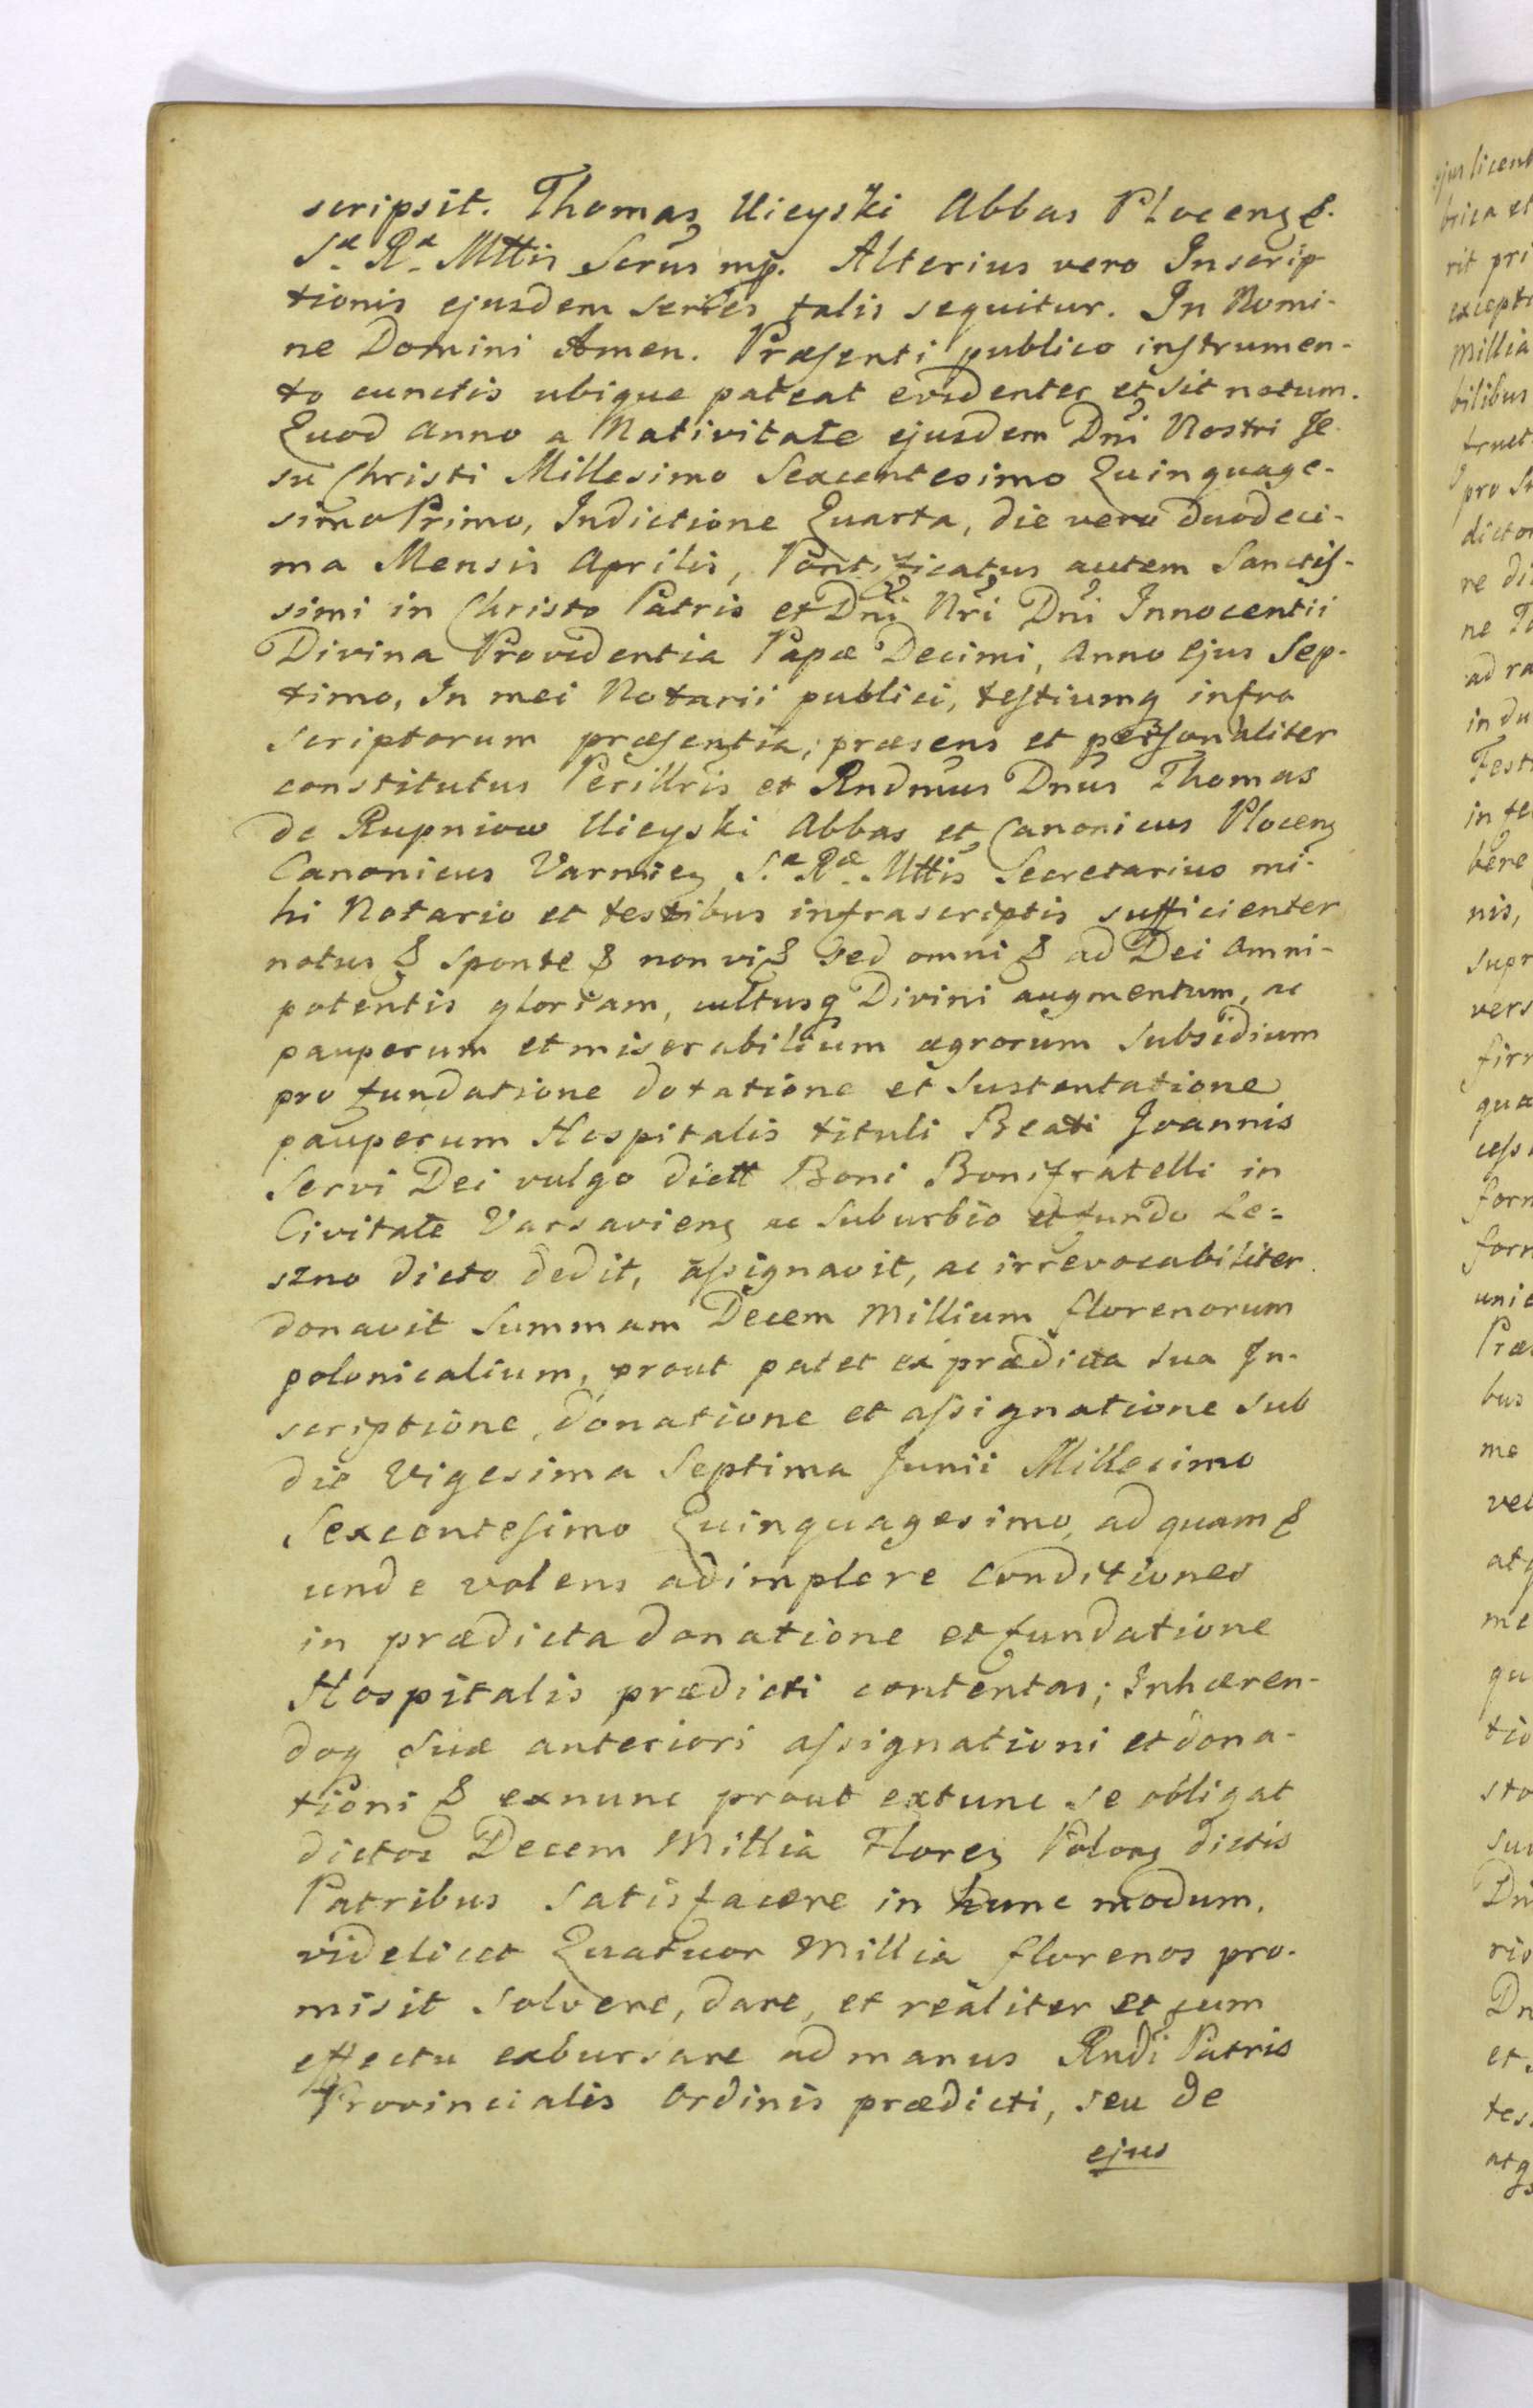 scripsit. Thomas Uieyski Abbas Plocenʒ &.
Sæ Ræ Mttis Serus mp. Alterius vero Inscrip
tionis ejusdem series talis sequitur. In Nomi-
ne Domini Amen. Præsenti publico instrumen-
to cunctis ubique pateat evidenter et sit notum.
Quod Anno a Nativitate ejusdem Dni Nostri Je-
su Christi Millesimo Sexcentesimo Quinquage-
simo Primo, Indictione Quarta, die vero duodeci-
ma Mensis Aprilis, Pontificatus autem Sanctis-
simi in Christo Patris et Dni Nri Dni Innocentii
Divina Providentia Papæ Decimi, Anno Ejus Sep-
timo, In mei Notarii publici, testiumq infra
scriptorum præsentia, præsens et personaliter
constitutus Perillris et Rndmus Dnus Thomas
de Rupniow Uieyski Abbas et Canonicus Plocenʒ
Canonicus Varmienʒ, Sæ Ræ Mttis Secretarius mi-
hi Notario et testibus infrascriptis sufficienter
notus & sponte & non vi & sed omni & ad Dei Omni-
potentis gloriam, cultusq Divini augmentum, ac
pauperum et miserabilium ægrorum Subsidium
pro fundatione dotatione et Sustentatione
pauperum Hospitalis tituli Beati Joannis
Servi Dei vulgo dictt Boni Bonifratelli in
Civitate Varsavienʒ ac Suburbio et fundo Le=
szno dicto dedit, assignavit, ac irrevocabiliter
donavit Summam Decem Millium florenorum
polonicalium, prout patet ex prædicta sua In-
scriptione, donatione et assignatione sub
die Vigesima Septima Junii Millesimo
Sexcentesimo Quinquagesimo, ad quam &
unde volens adimplere conditiones
in prædicta donatione et fundatione
Hospitalis prædicti contentas; Inhæren-
doq suæ anteriori assignationi et dona-
tioni & exnunc prout extunc se obligat
dictos Decem Millia Florenʒ Polonʒ dictis
Patribus satisfacere in hunc modum,
videlicet Quatuor Millia florenos pro-
misit solvere, dare, et realiter et cum
effectu exbursare ad manus Rndi Patris
Provincialis Ordinis prædicti, seu de
ejus